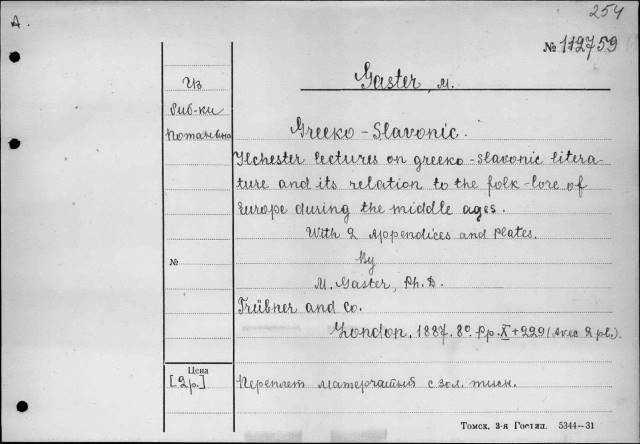 A.
254
№ 112759
Из
Биб-ки
Потанина
Gaster, M.
Greeko-Slavonic.
Ilchester lectures on greeko-slavonic litera-
ture and its relation to the folk-lore of
Europe during the middle ages.
With 2 Appendices and plates.
№
By
M. Gaster, Ph. D.
Trübner and Co.
London, 1887. 8º. Pp. X+229 (Avec 2 pl.).
Цена
[2р.]
Переплет матерчатый с зол. тисн.
Томск, 3-я Гостип. 5344—31